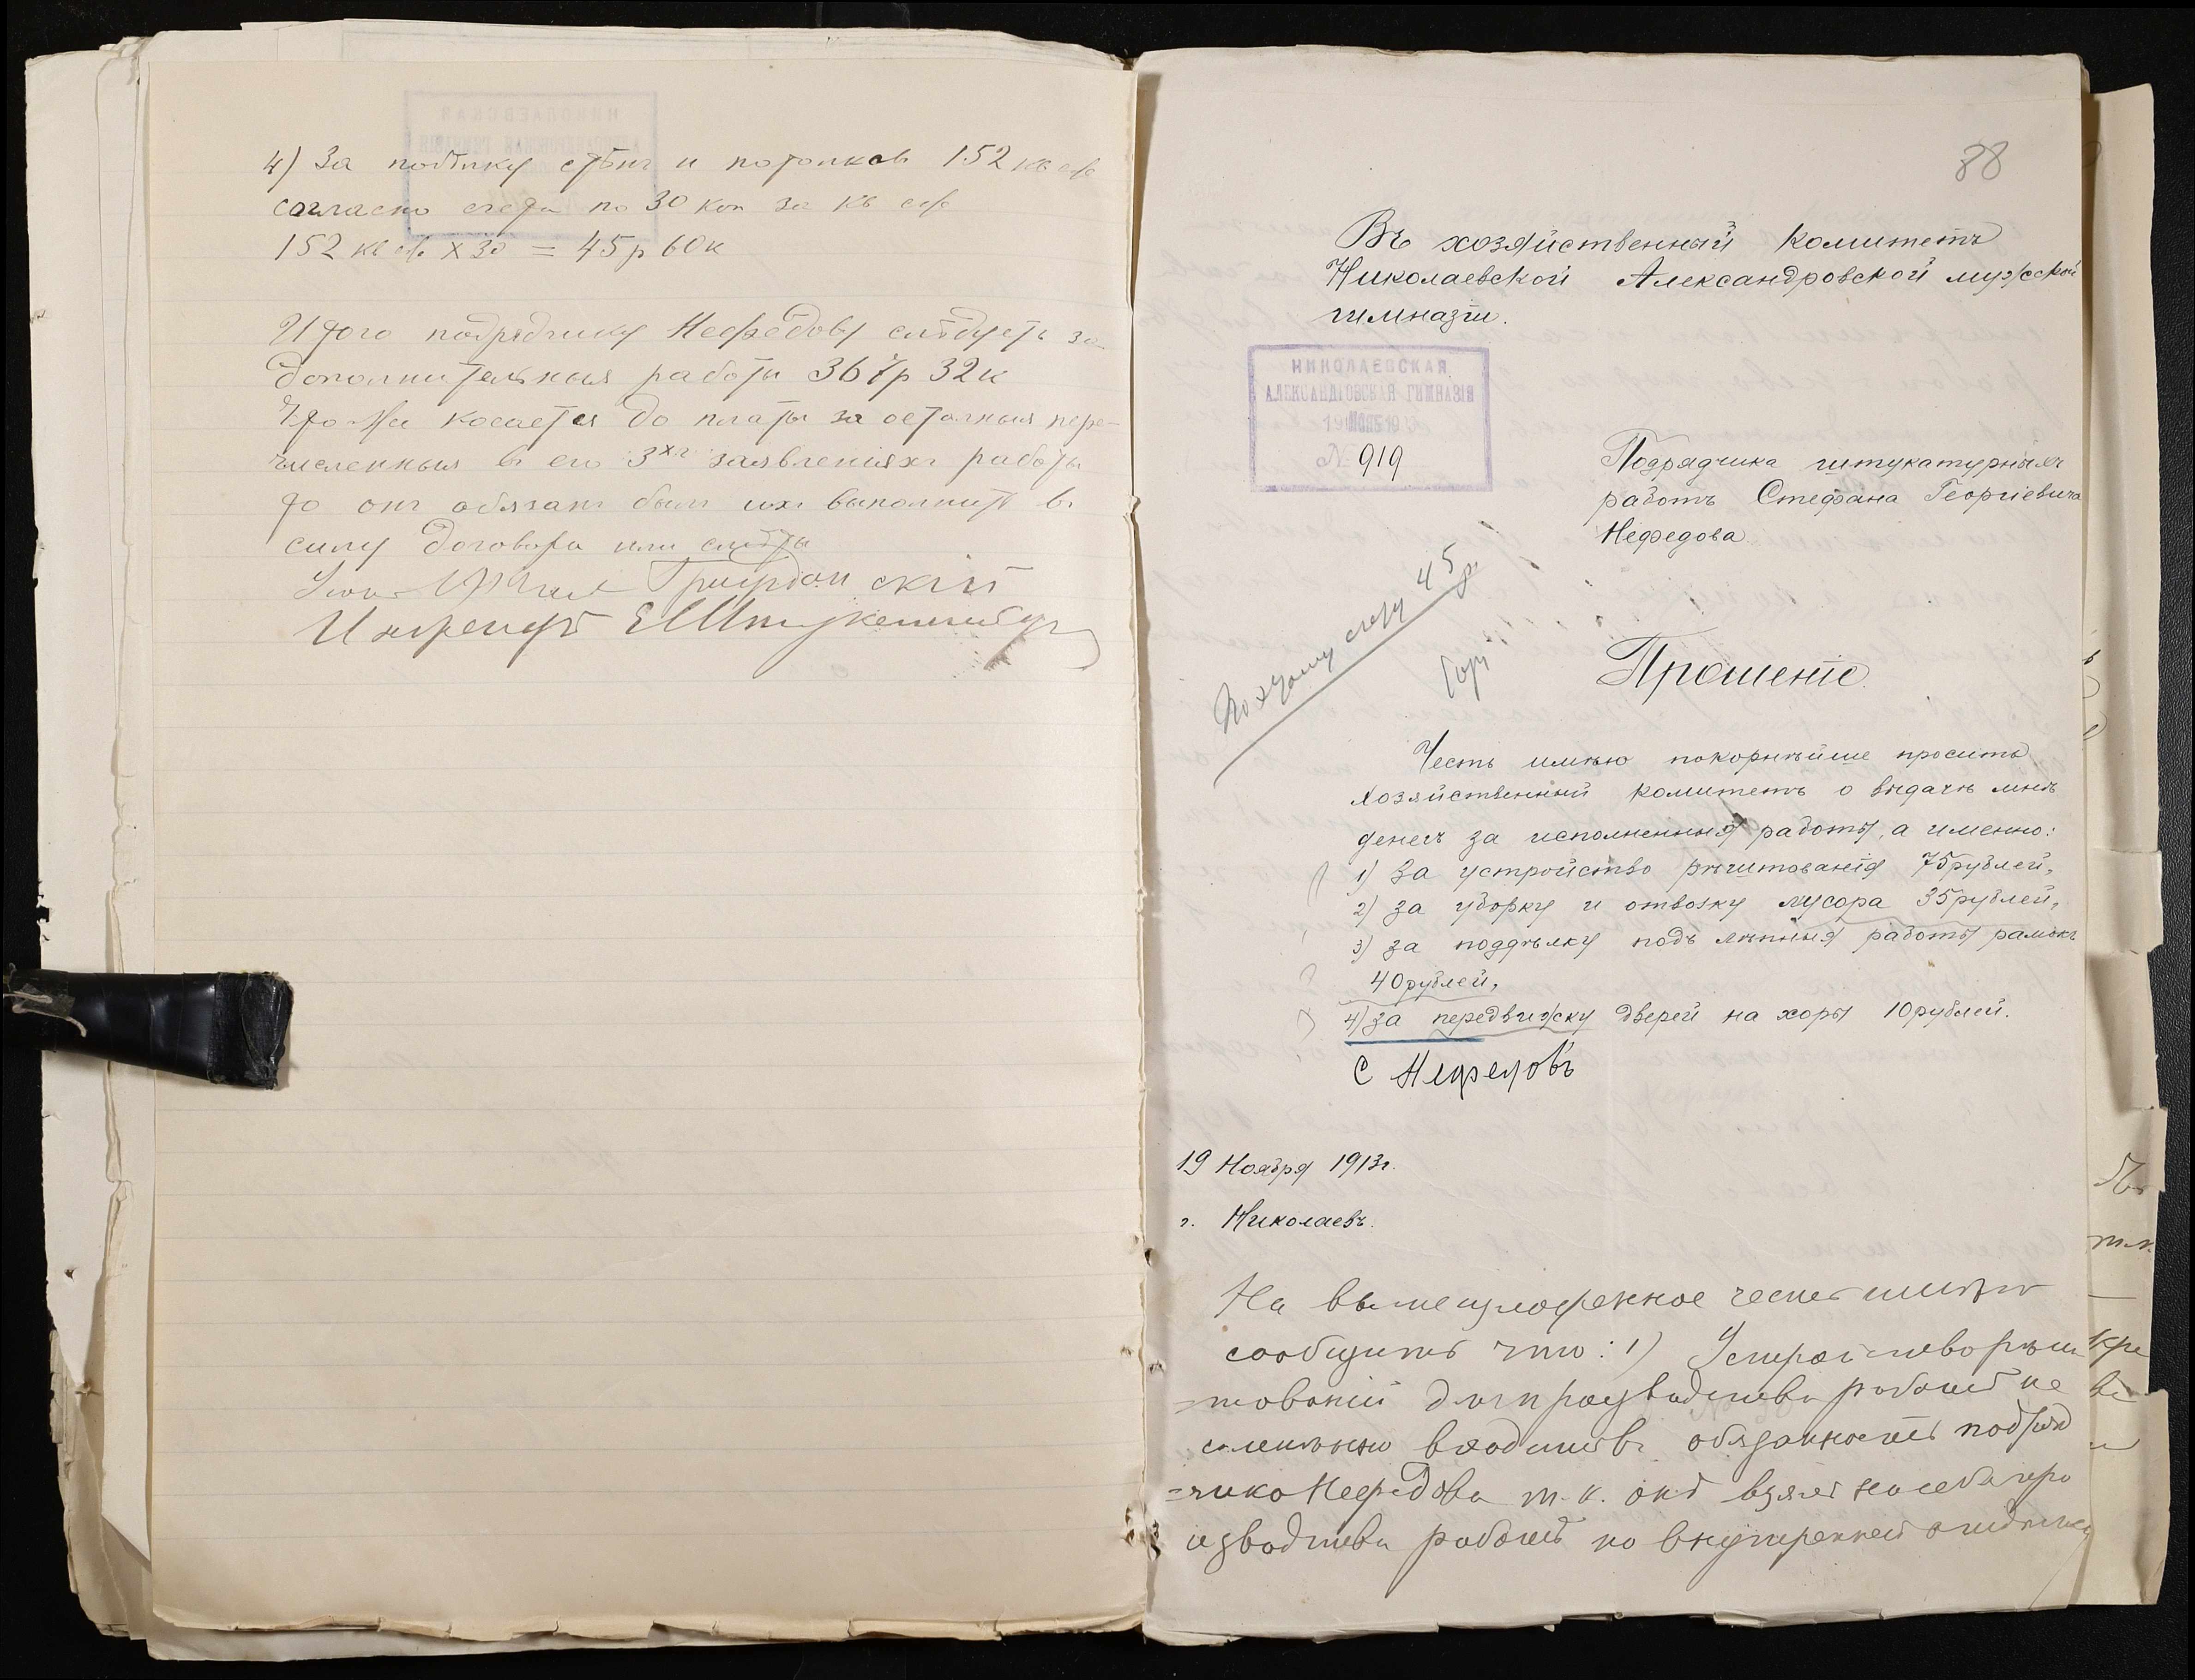 4) За побѣлку стѣнъ и потолковъ 152 кв саж
согласно счета по 30 коп за кв саж
152 кв саж х 30 = 45 р 60 к
Итого подрядчику Нефедову слѣдуетъ за
дополнительныя работы 367 р 32 к
Что же касается до платы за остальныя пере-
численныя въ его 3хъ заявленіяхъ работы
то онъ обязанъ былъ ихъ выполнить въ
силу договора или смѣты
88
Въ хозяйственный комитетъ
Николаевской Александровской мужской
гимназіи.
НИКОЛАЕВСКАЯ
АЛЕКСАНДРОВСКАЯ ГИМНАЗІЯ
№ 919
Подрядчика штукатурныхъ
работъ Стефана Георгіевича
Нефедова
По этому счету 45 р.
Прошеніе.
Честь имѣю покорнѣйше просить
Хозяйственный комитетъ о выдачѣ мнѣ
денегъ за исполненныя работы, а именно:
1) За устройство рѣштованія 75 рублей,
2) за уборку и отвозку мусора 35 рублей,
3) за поддѣлку подъ лѣпныя работы рамокъ
40 рублей,
4) за передвижку дверей на хоры 10 рублей.
С Нефедовъ
19 Ноября 1913 г.
г. Николаевъ.
На вышеизложенное честь имѣю
сообщить что: 1) Устройство рѣш
=тованій для производства работъ не
входитъ въ обязанность подряд
=чика Нефедова т. к. онъ взялъ на себя про
изводство работъ по внутренней отдѣлкѣ